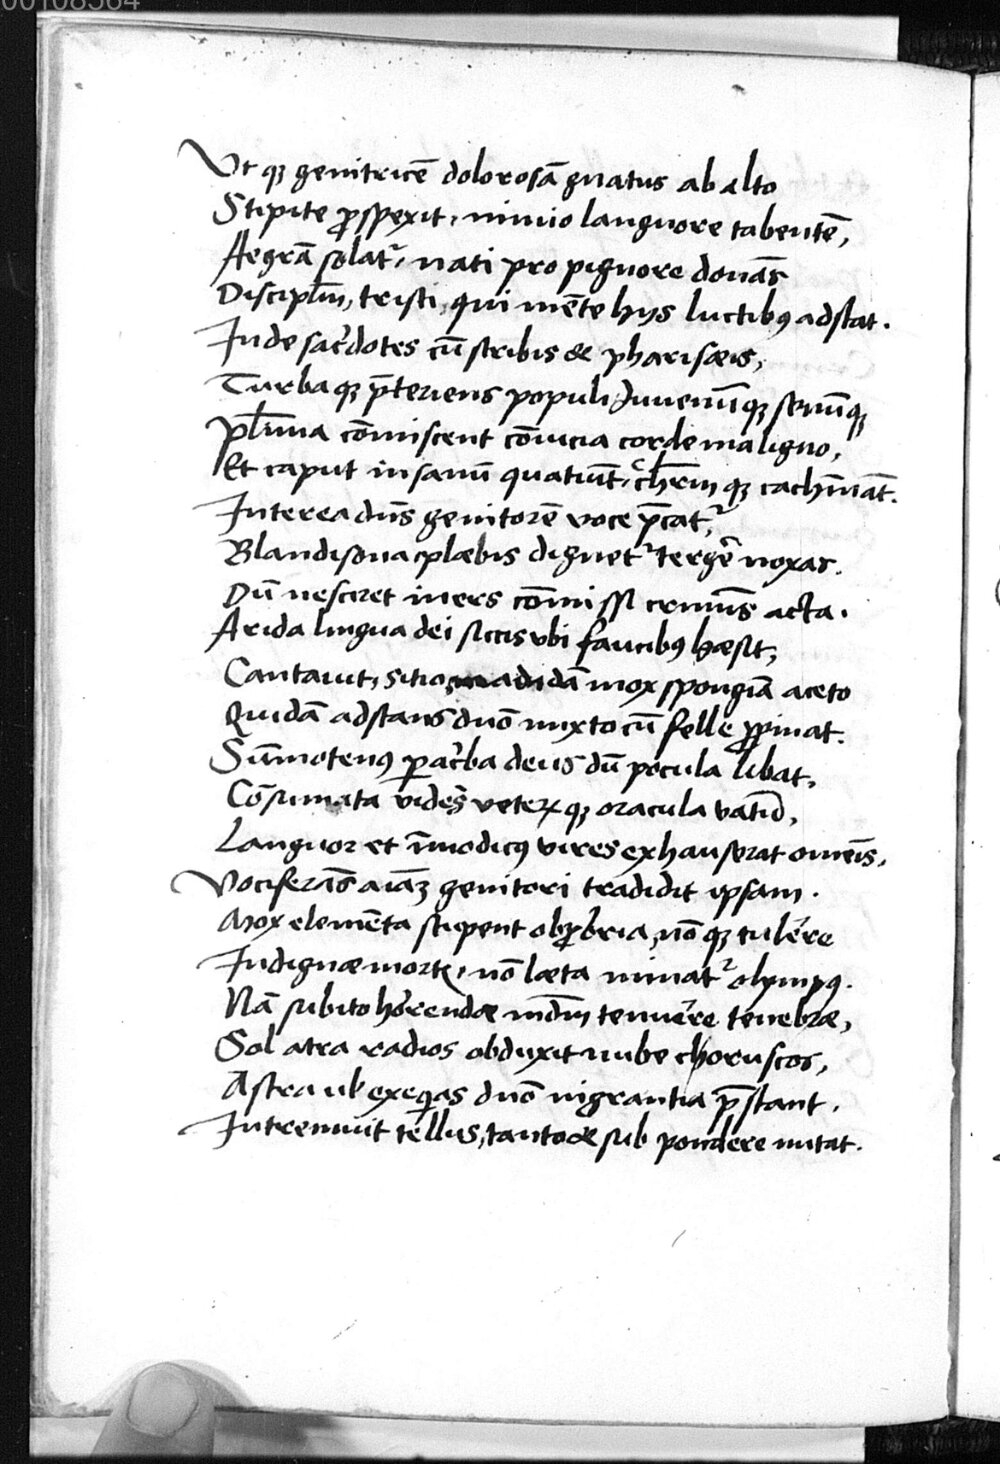 00108564
Vt qȝ genitricē dolorosā gnatus ab alto
Stipite ꝓspexit, nimio languore tabentē,
Aegrā solat᷑, nati pro pignore donās
Discipl̄m, tristi, qui mēte hys luctibꝰ adstat.
Inde sac̄dotes cū scribis & pharisæis,
Turba qȝ p̄teriens populi Juuenūqȝ senūqȝ
Pl̄ima cōmiscent cōuicia corde maligno,
Et caput insanū quatiūt, chr̄m qȝ cachīnāt.
Interea dn̄s genitorē voce p̄cat᷑,
Blandisona plæbis dignet᷑ tergē noxas.
Dū nesciret iners cōmissi criminis acta.
Arida lingua dei siccis vbi faucibꝰ hæsit,
Cantauit, sitio, madidā mox spongiā aceto
Quidā adstans dn̄o mixto cū felle ꝓpinat.
Sūmotenꝰ ꝑ ac̄ba deus dū pocula libat,
Cōsumata vidēs veteꝝ qȝ oracula vatū,
Languor et īmodicꝰ vires exhauserat omēis,
Vociferās aīaȝ genitori tradidit ipsam.
Mox elemēta stupent obꝓbria, nō qȝ tulēre
Indignæ mortꝭ, nō læta minat᷑ olympꝰ.
Nā subito horrendæ mūdm tenuēre tenebræ,
Sol atra radios obduxit nube choruscos,
Astra vl̄ exeq̄as dn̄o nigrantia p̄stant.
Intremuit tellus, tanto & sub pondere nutat.